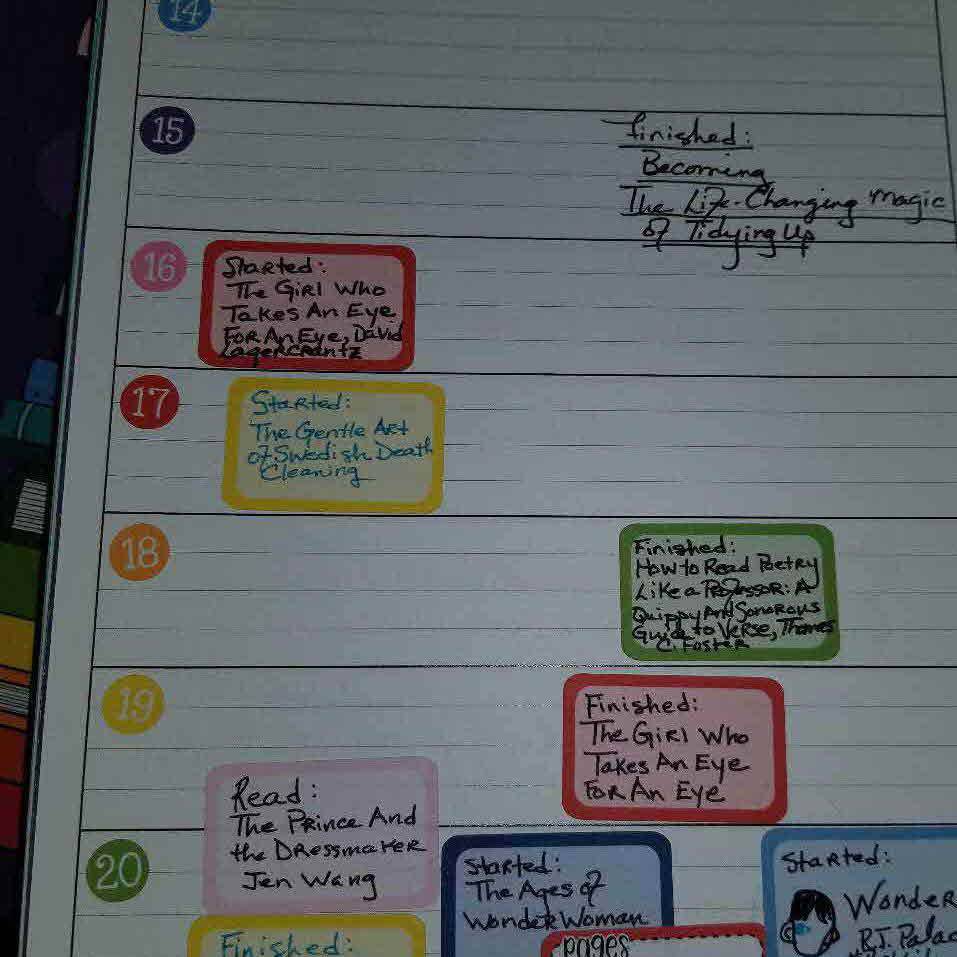 14
15
Finished:
Becoming
The Life-Changing Magic
of Tidying Up
16
Started:
The Girl Who
Takes An Eye
For An Eye, David
Lagercrantz
17
Started:
The Gentle Art
of Swedish Death
Cleaning
18
Finished:
How to Read Poetry
Like a Professor: A
Quippy And Sonorous
Guide to Verse, Thomas
C. Foster
19
Finished:
The Girl Who
Takes An Eye
For An Eye
20
Read:
The Prince And
the Dressmaker
Jen Wang
Started:
The Ages of
Wonder Woman
Started:
Wonder
R.J. Palac
Finished:
Pages